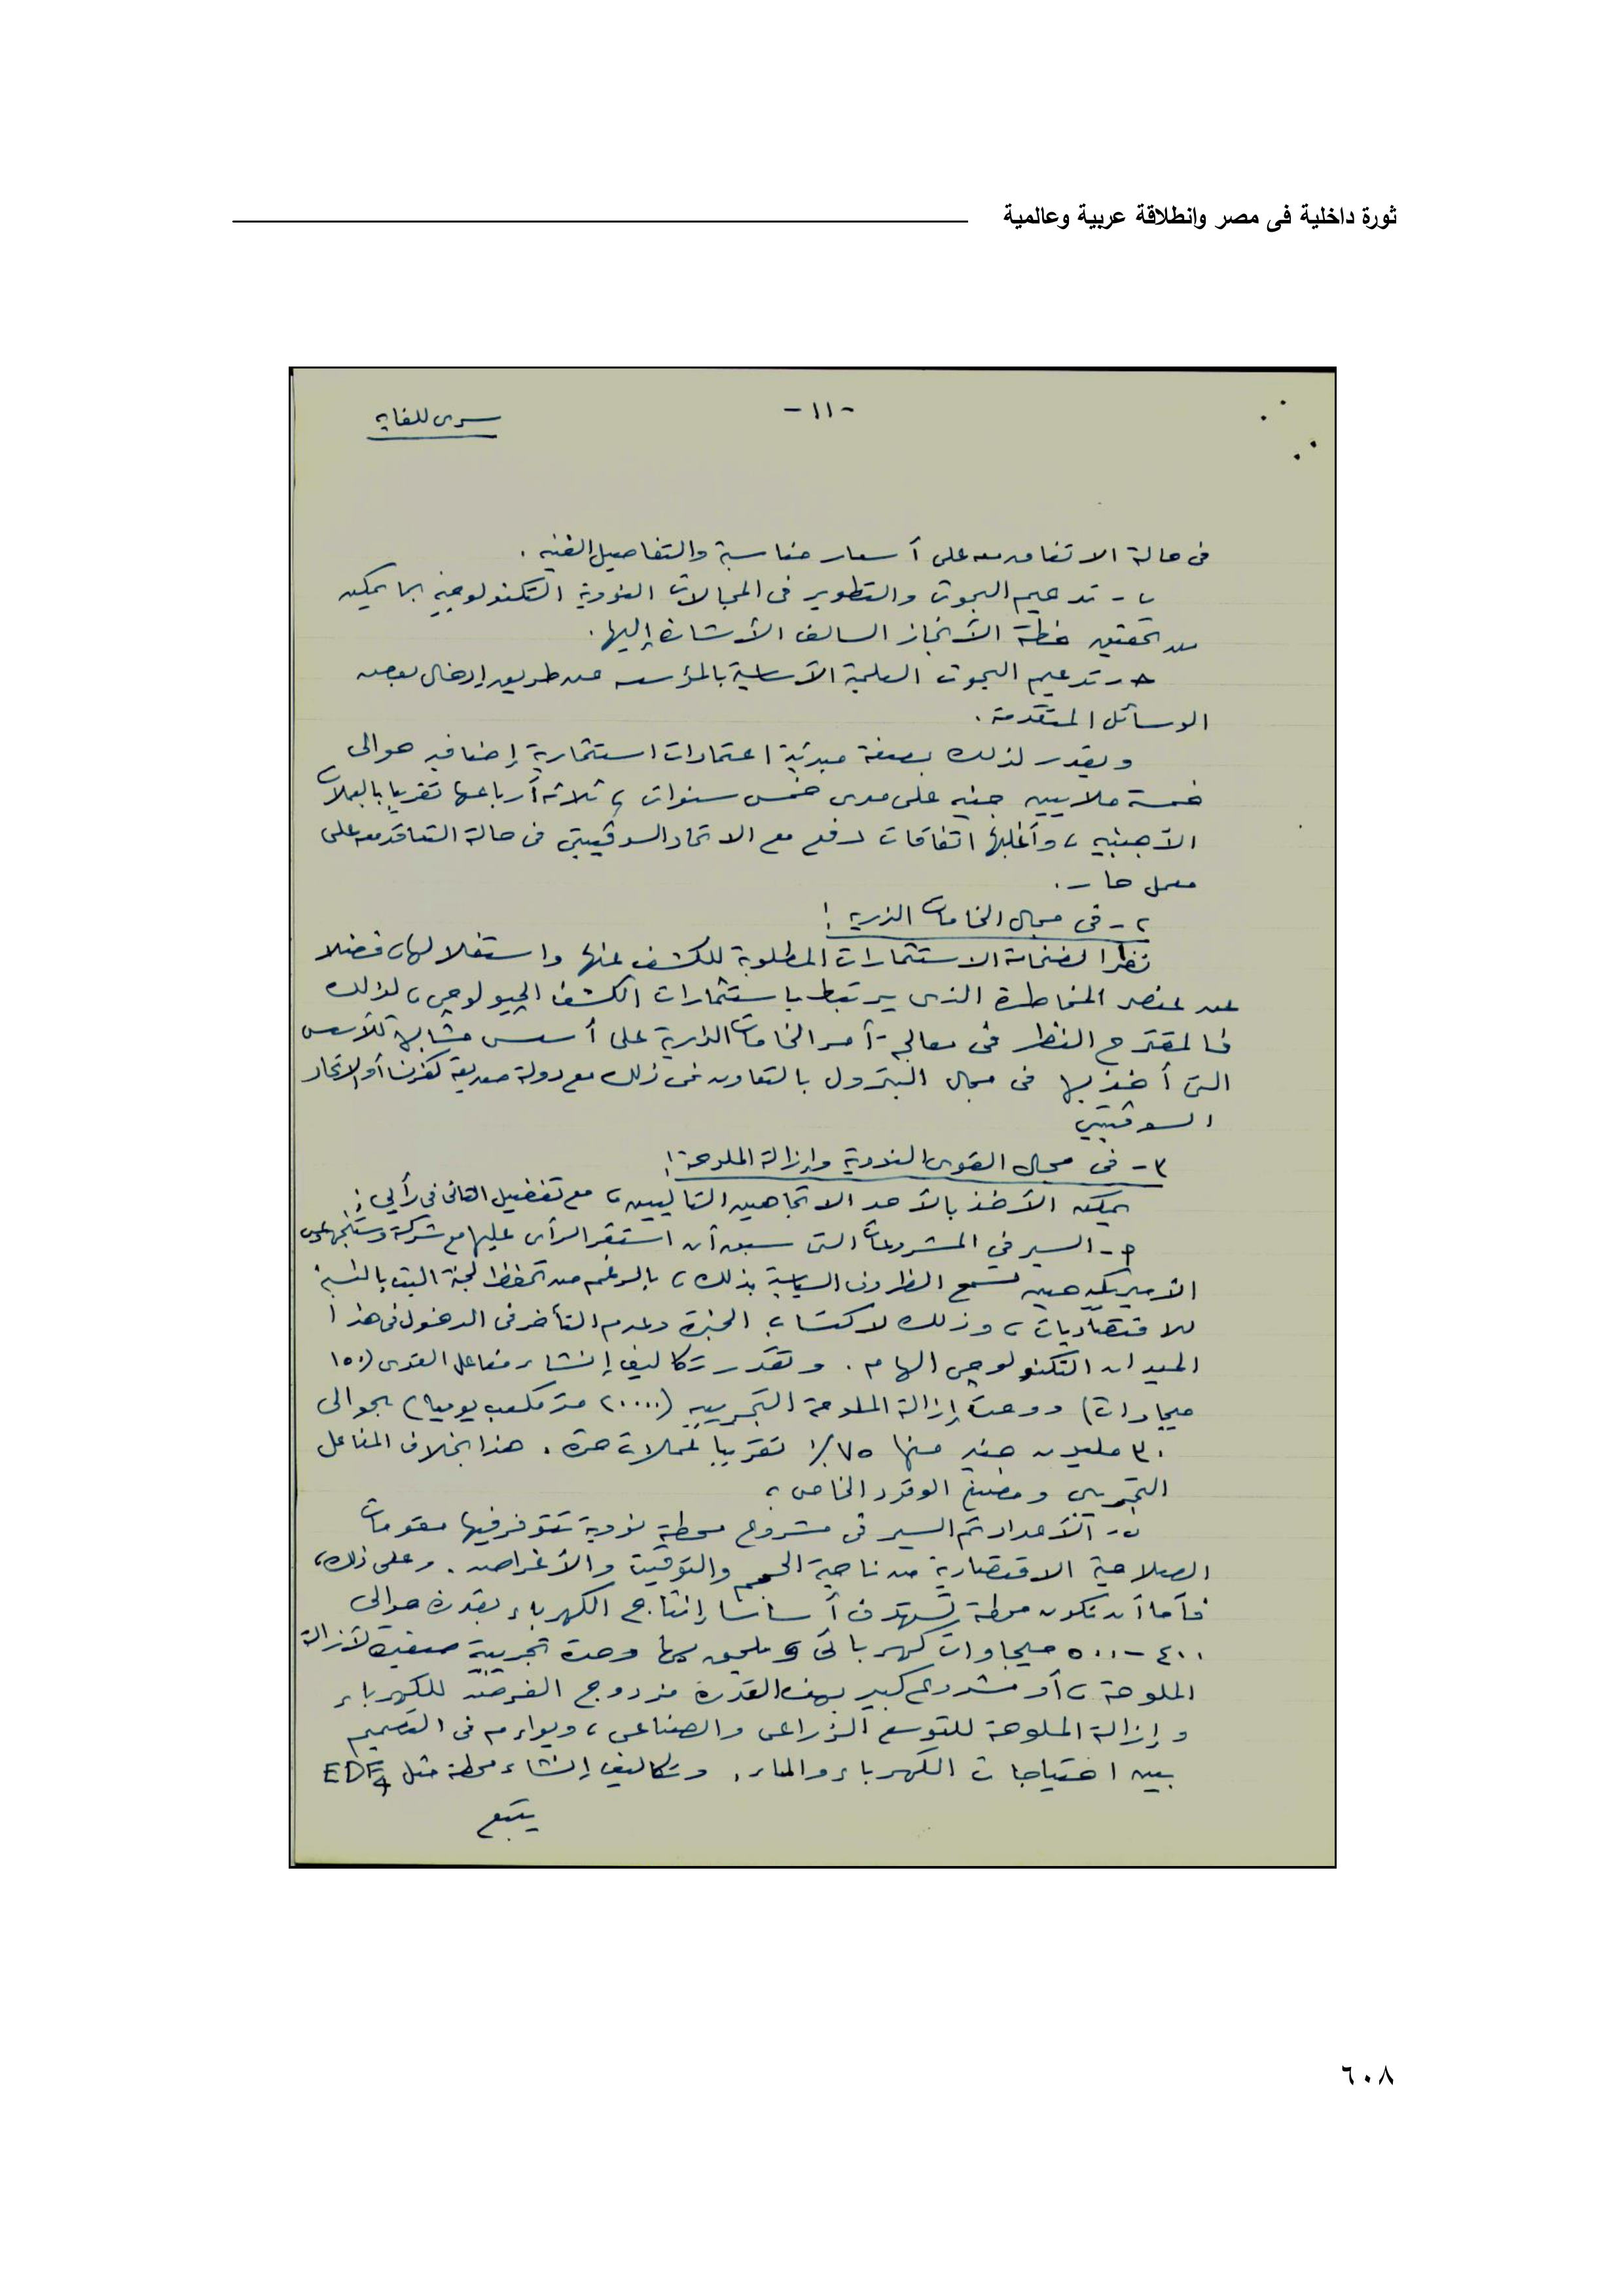 ثورة داخلية فى مصر وانطلاقة عربية وعالمية
-١١-
سرى للغاية
فى حالة الاتفاق معه على أسعار مناسبة والتفاصيل الفنية .
ب - تدعيم البحوث والتطوير فى المجالات النووية التكنولوجية بما يمكن
من تحقيق خطة الأنجاز السالف الأشارة إليها .
حـ - تدعيم البحوث العلمية الأساسية بالمؤسسه عن طريق إدخال بعض
الوسائل المتقدمة .
ويقدر لذلك بصفة مبدئية اعتمادات استثمارية إضافيه حوالى
خمسة ملايين جنيه على مدى خمس سنوات ، ثلاثه أرباعها تقريبا بالعملات
الأجنبيه ، وأغلبها اتفاقات دفع مع الاتحاد السوڤييتى فى حالة التعاقد معه على
معمل حار .
٢ - فى مجال الخامات الذرية :
نظرا لضخامة الاستثمارات المطلوبة للكشف عنها واستغلالها ، فضلا
عن عنصر المخاطرة الذى يرتبط باستثمارات الكشف الجيولوجى ، لذلك
فالمقترح النظر فى معالجة أمر الخامات الذرية على أسس مشابهة للأسس
التى أخذ بها فى مجال البترول بالتعاون فى ذلك مع دولة صديقة كفرنسا أو الاتحاد
السوڤييتي
٣ - فى مجال القوى النووية وإزالة الملوحة :
يمكن الأخذ بالأحد الاتجاهين التاليين ، مع تفضيل الثانى فى رأيي :
أ - السير في المشروعات التى سبق أن استقر الرأى عليها مع شركة وستنجهاوس
الأميريكية حين تسمح الظروف السياسية بذلك ، بالرغم من تحفظ لجنة البت بالنسبة
للاقتصاديات ، وذلك لاكتساب الخبرة وعدم التأخر فى الدخول فى هذا
الميدان التكنولوجى الهام . وتقدر تكاليف إنشاء مفاعل القوى (١٥٠
ميجاوات) ووحدة إزالة الملوحة التجريبيه (٢٠٠٠٠ متر مكعب يوميا) بحوالى
٣٠ مليون جنيه منها ٧٥٪ تقريبا عملات حرة . هذا بخلاف المفاعل
التجريبي ومصنع الوقود الخاص ،
ب - الأعداد ثم السير فى مشروع محطة نووية تتوفر فيها مقومات
الصلاحية الاقتصادية من ناحية الحجم والتوقيت والأغراض . وعلى ذلك ،
فأما أن تكون محطة تستهدف أساسا إنتاج الكهرباء بقدرة حوالى
٤٠٠ - ٥٠٠ ميجاوات كهربائى وملحق بها وحدة تجريبية صغيرة لأزالة
الملوحة ، أو مشروع كبير بهذه القدرة مزدوج الغرض للكهرباء
وإزالة الملوحة للتوسع الزراعى والصناعى ، ويواءم فى التصميم
بين احتياجات الكهرباء والماء . وتكاليف إنشاء محطة مثل EDF4
يتبع
٦٠٨